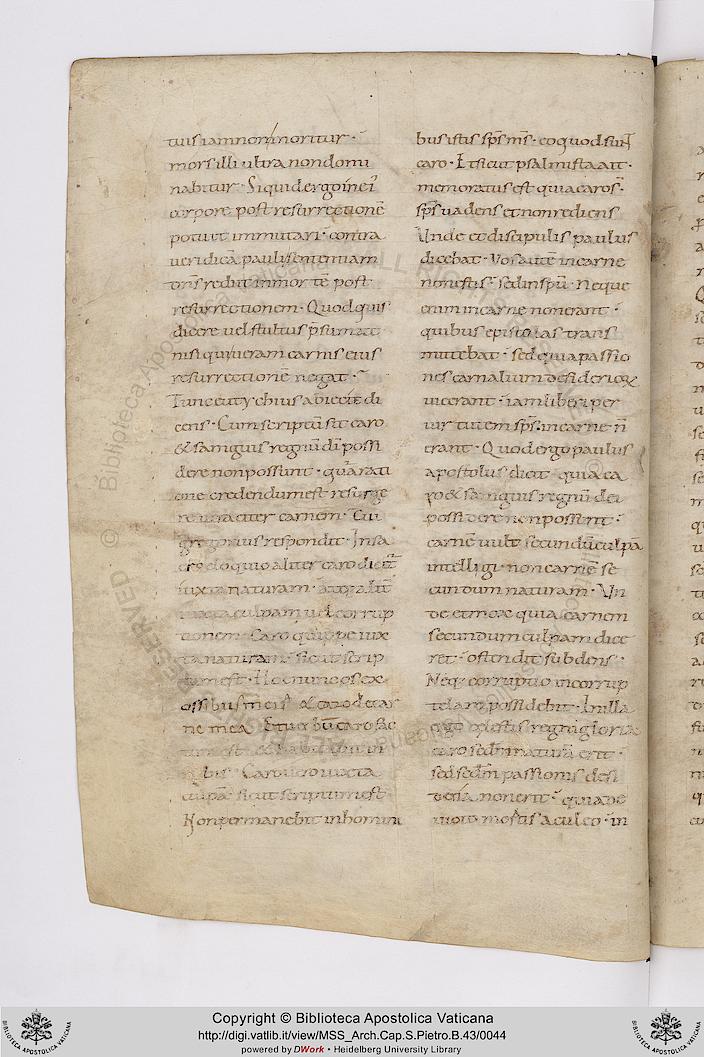 tuis iam non moritur ·
mors illi ultra non domi
nabitur · Siquid ergo in ei᷒
corpore post resurrectionē
potuit immutari · contra
ueridicā pauli sententiam
dn̄s rediit in mortē post
resurrectionem · Quod quis
dicere uel stultus p̄sumat
nisi qui ueram carnis eius
resurrectionē negat ·
Tunc euty chius abiecit di
cens · Cum scriptū sit caro
& sanguis regnū dī possi
dere non possunt · qua rati
one credendum est resurge
re ueraciter carnem · Cui
gregorius respondit · In sa
cro eloquio aliter caro dicit᷒
iuxta naturam · atq; alit᷒
iuxta culpam uel corrup
tionem · Caro quippe iux
ta naturam · sicut scrip
tum est · Hoc nunc os ex
ossibus meis · & caro de car
ne mea · Et uerbū caro fac
tum est · & habitauit in
nobis · Caro uero iuxta
culpā · sicut scriptum est ·
Non permanebit in homini
bus istis sp̄s m̄s · eo quod sunt
caro · Et sicut psalmista ait ·
memoratus est quia caro s̄ ·
sp̄s uadens et non rediens
Unde et discipulis paulus
dicebat · Vos autē in carne
non estis · sed in sp̄u · Neque
enim in carne non erant ·
quibus epistolas trans
mittebat · sed quia passio
nes carnalium desideriorꝝ
uicerant · iam liberi per
uirtutem sp̄s in carne n̄
erant · Quod ergo paulus
apostolus dicit · quia ca
ro & sanguis regnū dei
possidere non possunt ·
carnē uult secundū culpā
intellegi · non carnē se
cundum naturam · Un
de et mox quia carnem
secundum culpam dice
ret · ostendit subdens ·
Neq; corruptio incorrup
telam possidebit · In illa
ergo celestis regni gloria
caro scdm̄ naturā erit ·
sed scdm̄ passionis desi
deria non erit · quia de
uicto mortis aculeo · in
Copyright © Biblioteca Apostolica Vaticana
http://digi.vatlib.it/view/MSS_Arch.Cap.S.Pietro.B.43/0044
powered by DWork • Heidelberg University Library